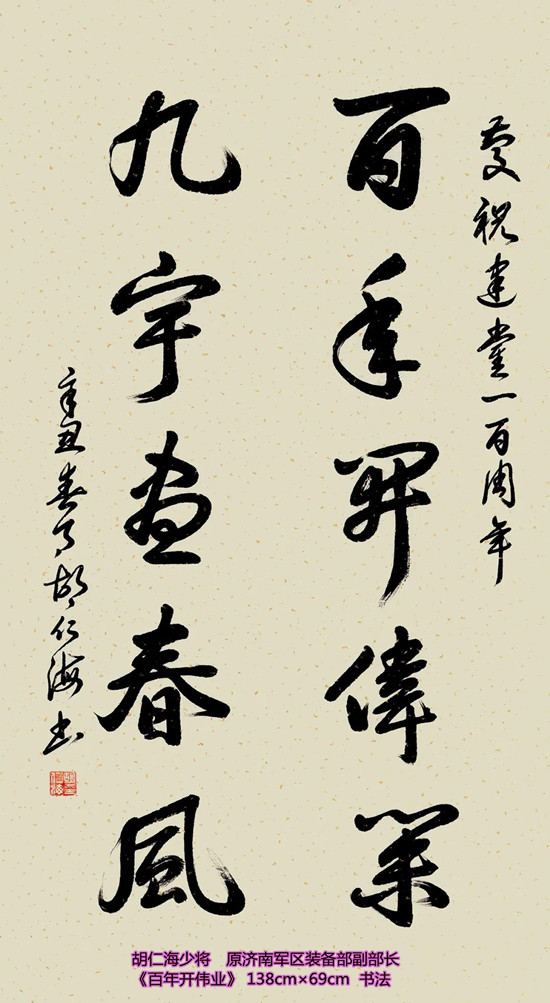 慶祝建黨一百周年
百年開偉業
九宇畫春風
辛丑春月胡仁海书
胡仁海少将 原济南军区装备部副部长
《百年开伟业》 138cm×69cm 书法